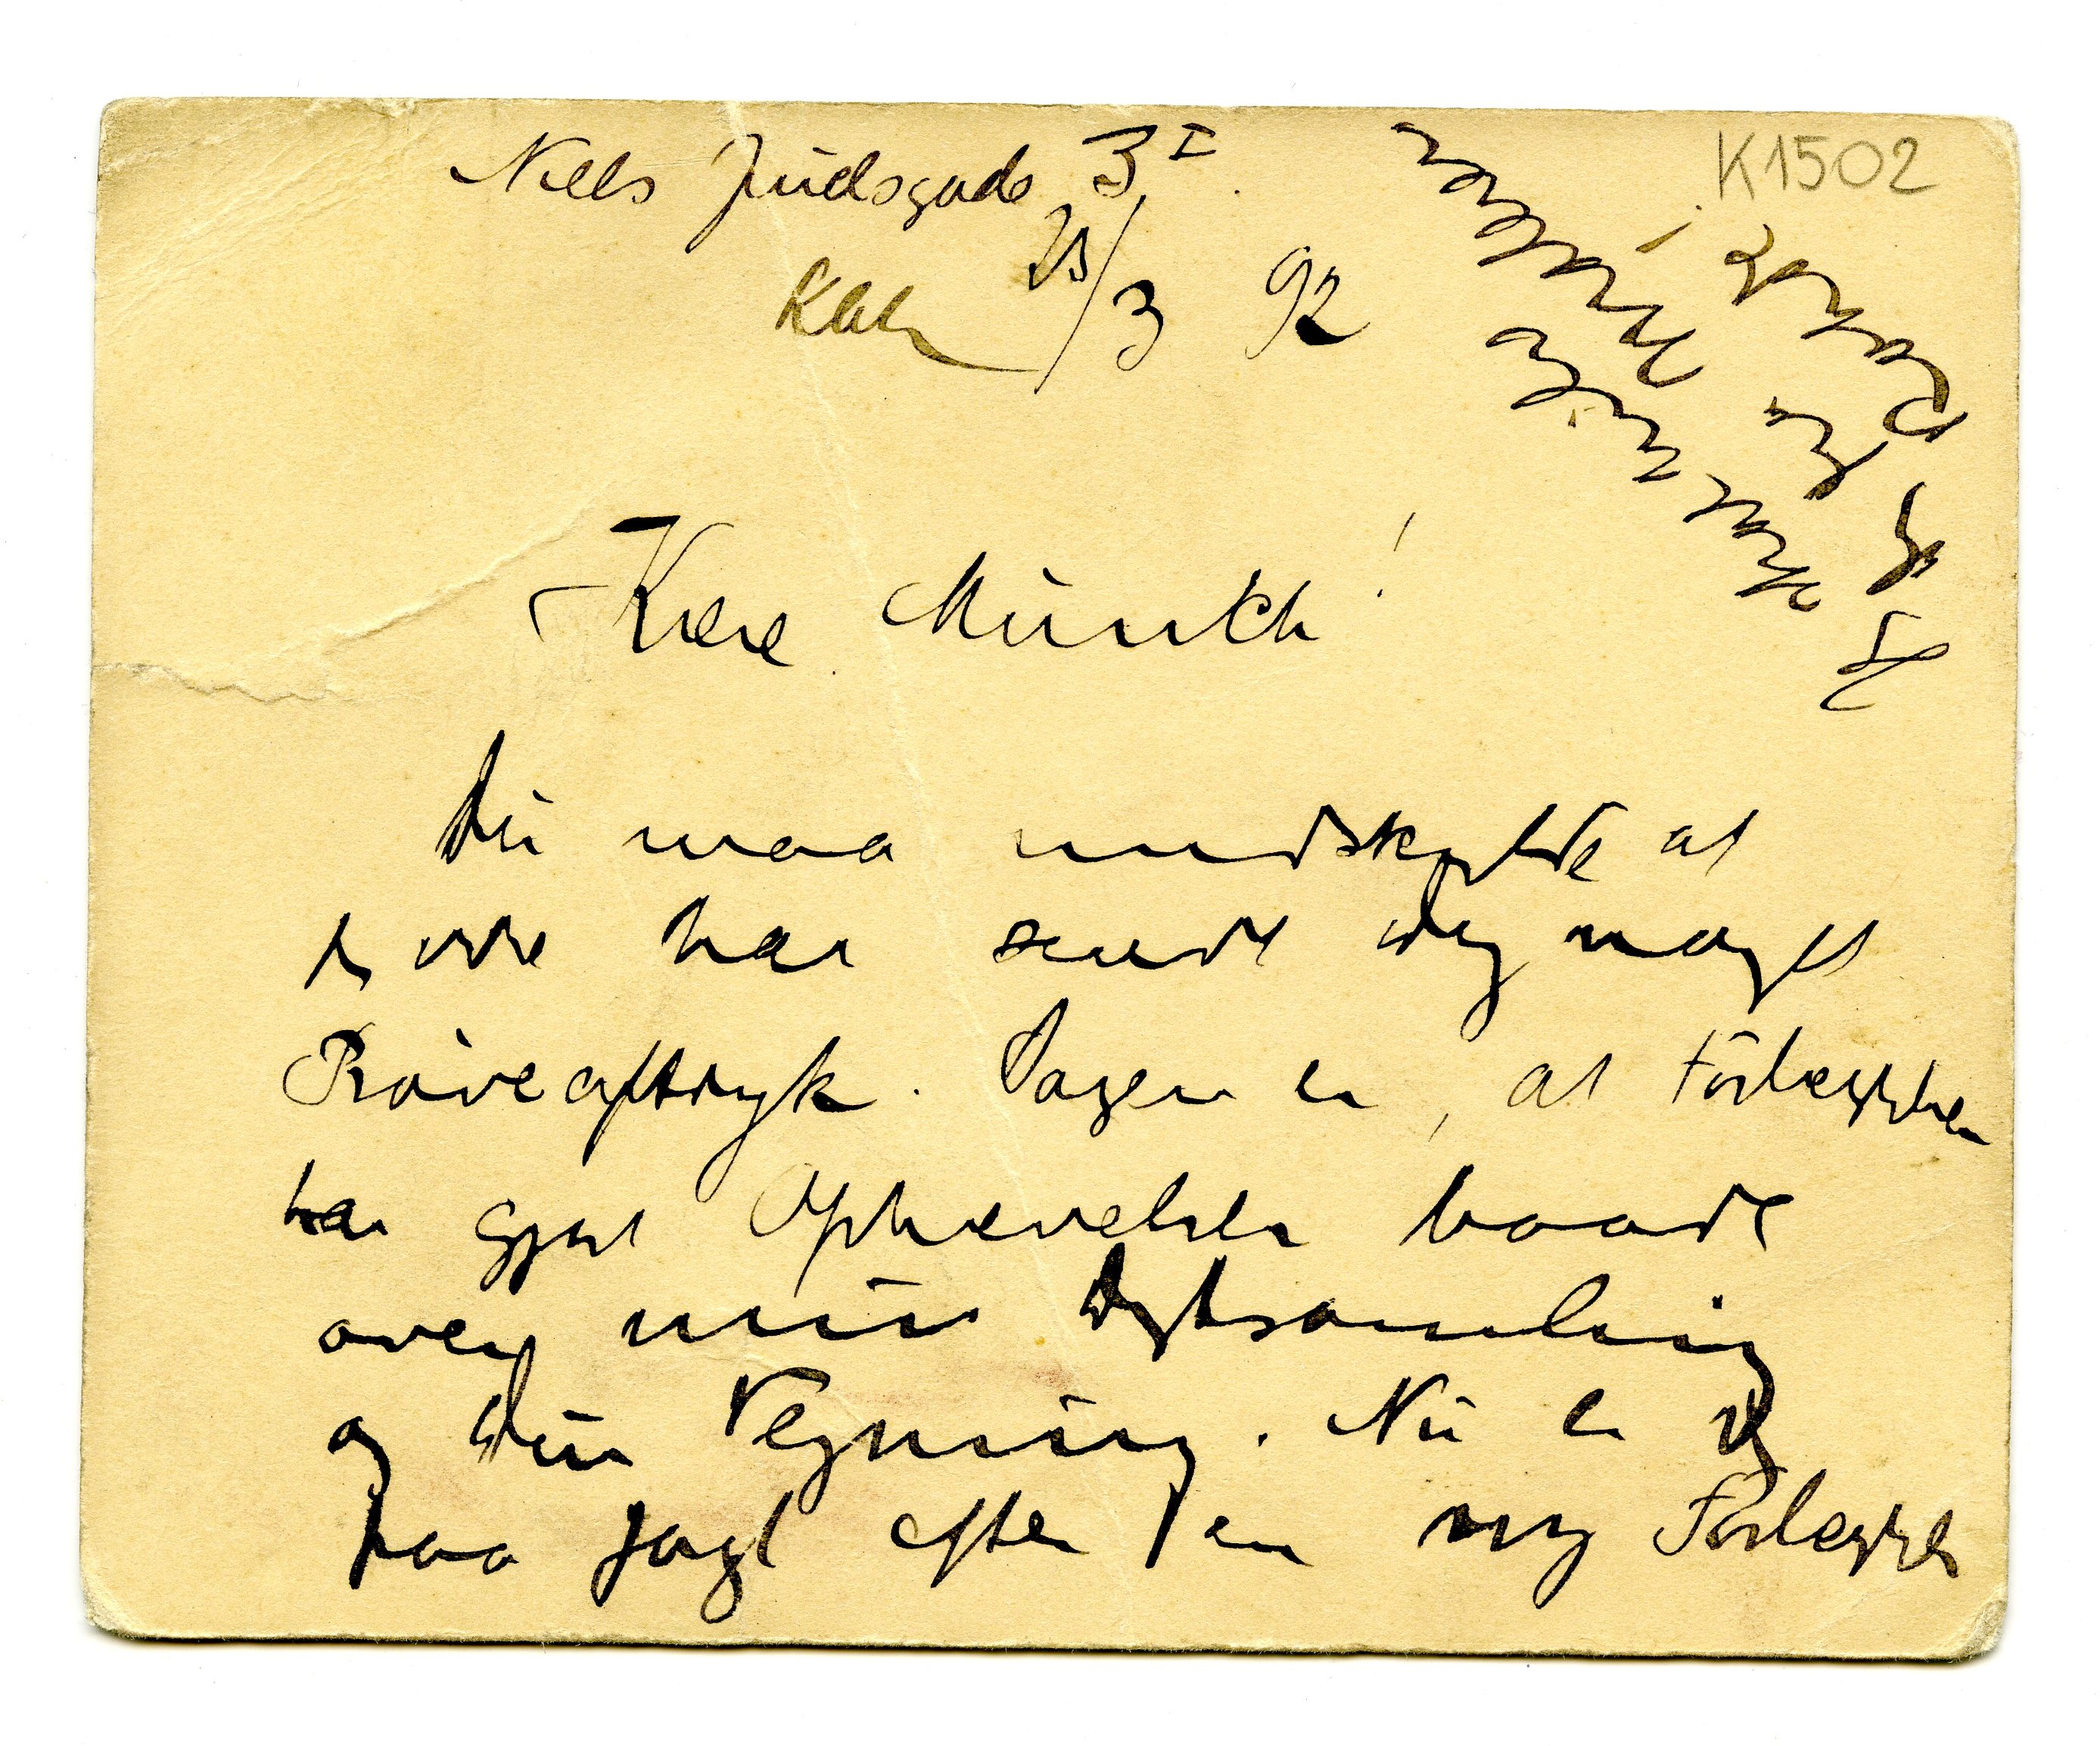 K1502
Niels Juelsgade 3 I.
Kbh 23/3 92
Kære Munch!
Du maa undskylde at
jeg ikke har sendt dig noget
Prøveaftryk. Sagen er, at Forlæggeren
har gjort Ophævelser baade
over min Digtsamling
og din Tegning. Nu er jeg
paa Jagt efter en ny Forlægger